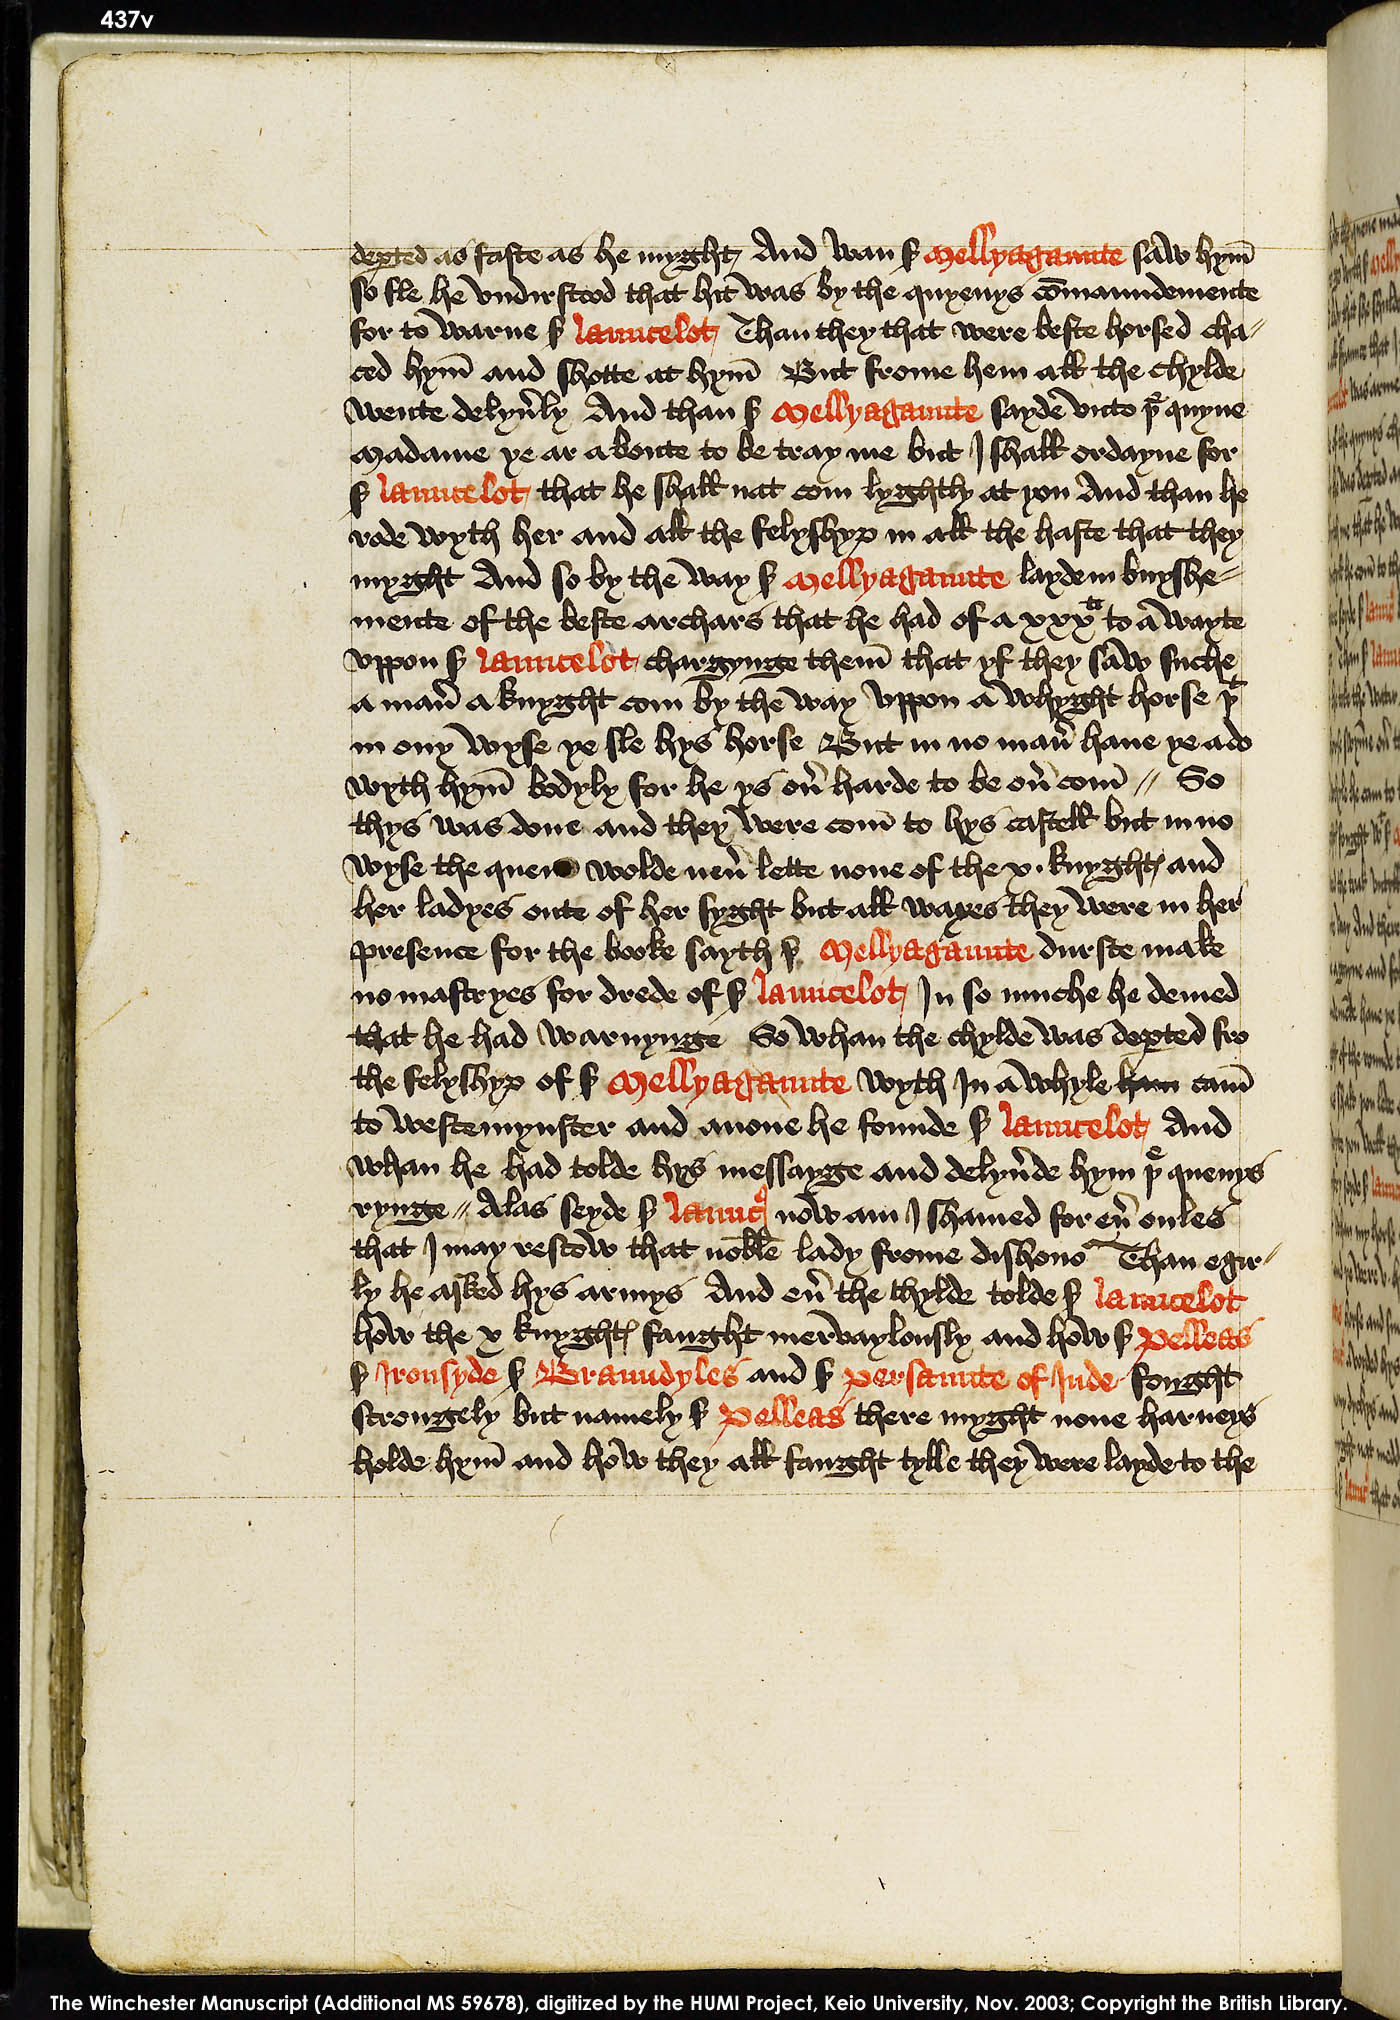 437v
dep̱ted as faste as he myght And Wan ẜ Mellyagaunte saw hym̅
so fle he vndirstood that hit was by the quyenys co̅maundemente
for to warne ẜ Launcelot Than they that were beste horsed cha〃
ced hym̅ and shotte at hym̅ But frome hem all the chylde
wente delyu̾ly And than ẜ Mellyagaunte sayde vnto þͤ quyne
Madame ye ar aboute to be tray me but I shall ordayne for
ẜ Launcelot that he shall nat com lyghtly at you And than he
rode wyth her and all the felyshyp in all the haste that they
myght And so by the way ẜ Mellyagaunte layde in buyshe〃
mente of the beste archars that he had of a xxxᵗⁱ to a wayte
vppon ẜ Launcelot chargynge them̅ that yf they saw suche
a man̾ a knyght com by the way vppon a whyght horse þᵗ
in ony wyse ye sle hys horse But in no man̾ haue ye ado
wyth hym̅ bodyly for he ys ou̾ harde to be ou̾ com̅ 〃 So
thys was done and they were com̅ to hys castell but in no
wyse the quene wolde neu̾ lette none of the x. knyghtꝭ and
her ladyes oute of her syght but all wayes they were in her
presence for the booke sayth ẜ Mellyagaunte durste make
no mastryes for drede of ẜ Launcelot In so muche he demed
that he had warnynge So whan the chylde was dep̱ted fro
the felyshyp of ẜ Mellyagaunte wyth In a whyle ham cam̅
to westemynster and anone he founde ẜ Launcelot And
whan he had tolde hys messayge and delyu̾de hym þͤ quenys
rynge 〃 Alas seyde ẜ Launcꝭ now am I shamed for eu̾ onles
that I may rescow that noble lady frome dishono Than eger〃
ly he asked hys armys And eu̾ the chylde tolde ẜ Launcelot
how the x knyghtꝭ faught mervaylously and how ẜ Pelleas
ẜ Ironsyde ẜ Braundyles and ẜ Persaunte of Inde fought
strongely but namely ẜ Pelleas there myght none harneys
holde hym̅ and how they all faught tylle they were layde to the
The Winchester Manuscript (Additional MS 59678), digitized by the HUMI Project, Keio University, Nov. 2003; Copyright the British Library.